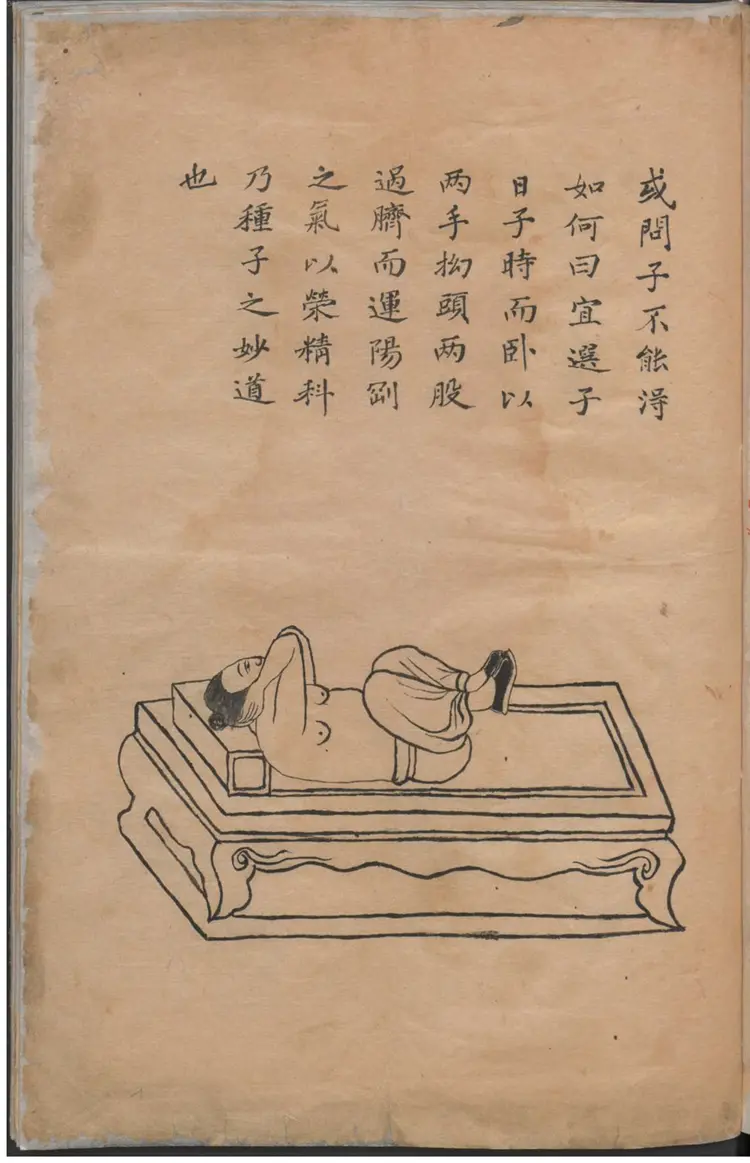 或問子不能淂
如何曰宜選子
日子時而卧以
两手拗頭两股
過臍而運陽剛
之氣以榮精科
乃種子之妙道
也